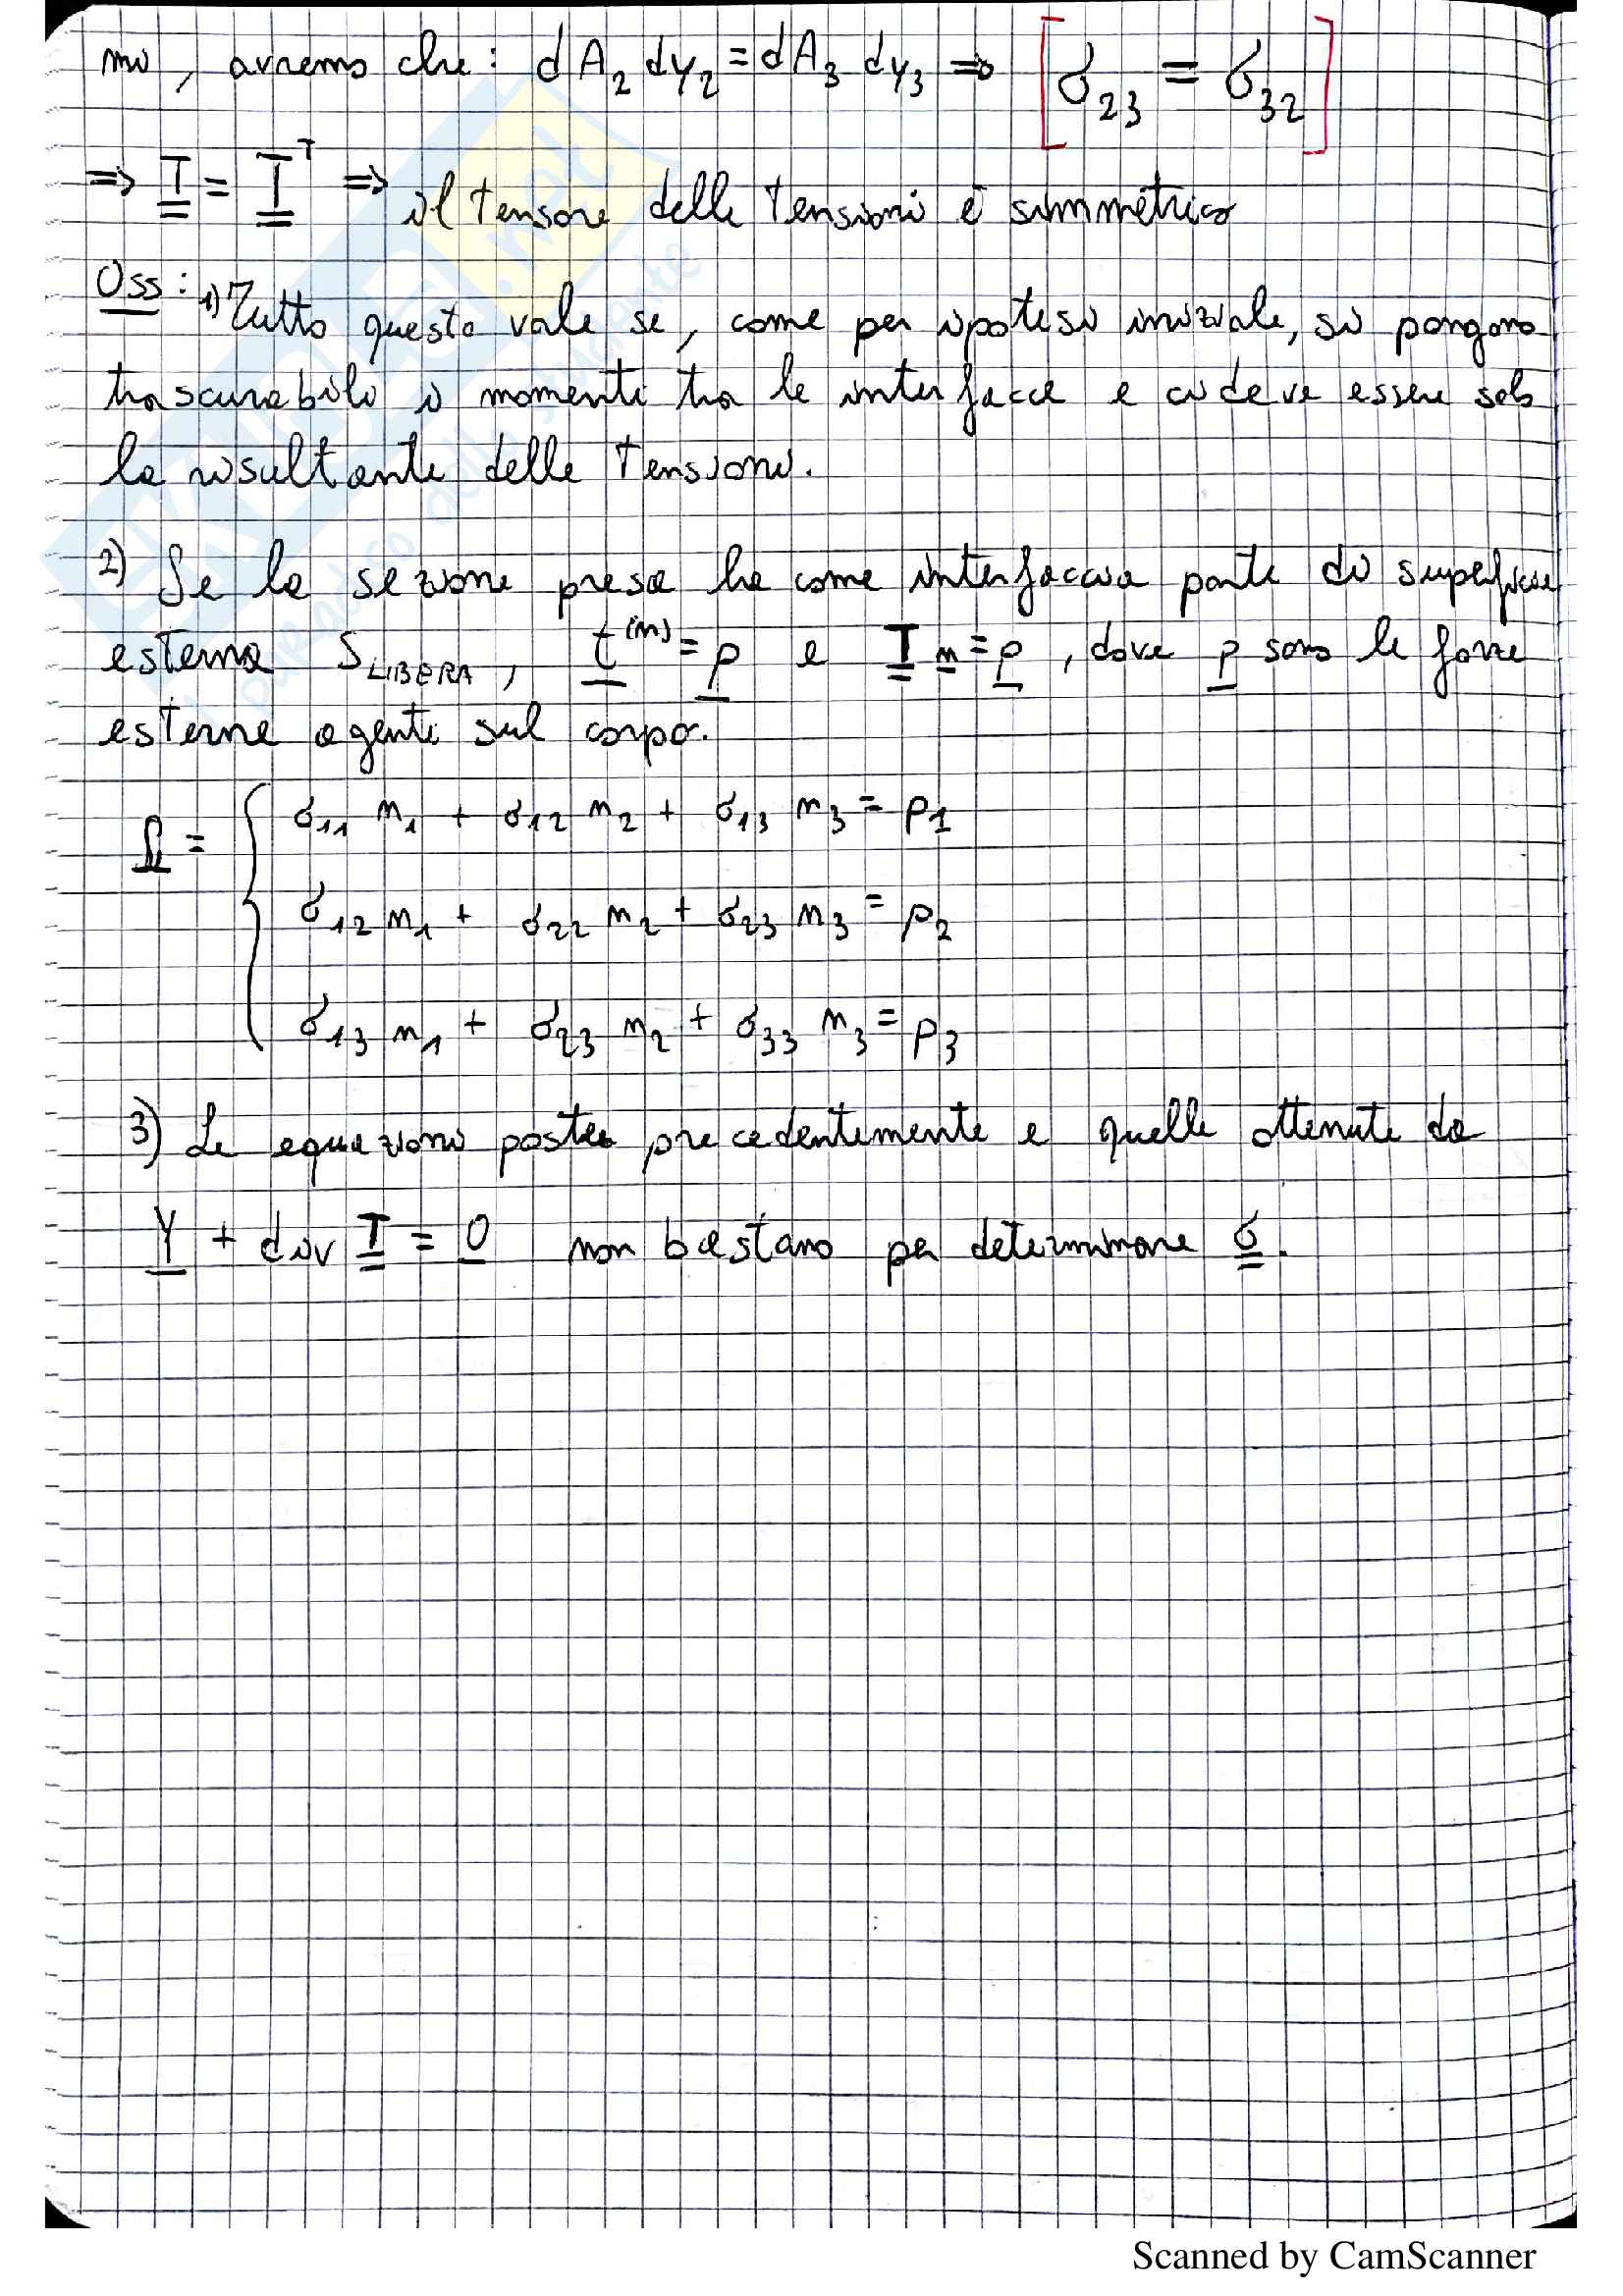 mo, avremo che: dA₂ dy₂ = dA₃ dy₃ => [σ₂₃ = σ₃₂]
=> T = Tᵀ => il tensore delle tensioni è simmetrico
Oss: 1) Tutto questo vale se, come per ipotesi iniziale, si pongono
trascurabili i momenti tra le interfacce e ci deve essere solo
la risultante delle tensioni.
2) Se la sezione presa ha come interfaccia parte di superficie
esterna S LIBERA, t⁽ⁿ⁾ = p e T n = p, dove p sono le forze
esterne agenti sul corpo.
σ₁₁ n₁ + σ₁₂ n₂ + σ₁₃ n₃ = p₁
σ₁₂ n₁ + σ₂₂ n₂ + σ₂₃ n₃ = p₂
σ₁₃ n₁ + σ₂₃ n₂ + σ₃₃ n₃ = p₃
3) Le equazioni poste precedentemente e quelle ottenute da
Y + div T = 0 non bastano per determinare σ.
SKUOLA.net
il paradiso dello studente
Scanned by CamScanner